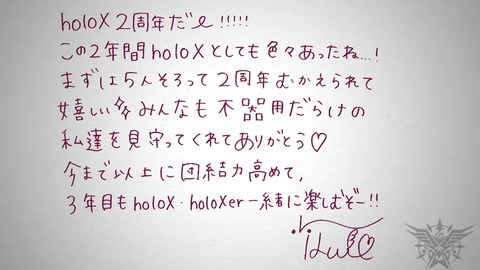 holoX 2周年だぞ!!!!!
この2年間holoXとしても色々あったね…!
まずは5人そろって2周年むかえられて
嬉しい みんなも不器用だらけの
私達を見守ってくれてありがとう♡
今まで以上に団結力高めて,
3年目もholoX・holoXer一緒に楽しむぞー!!
Lui